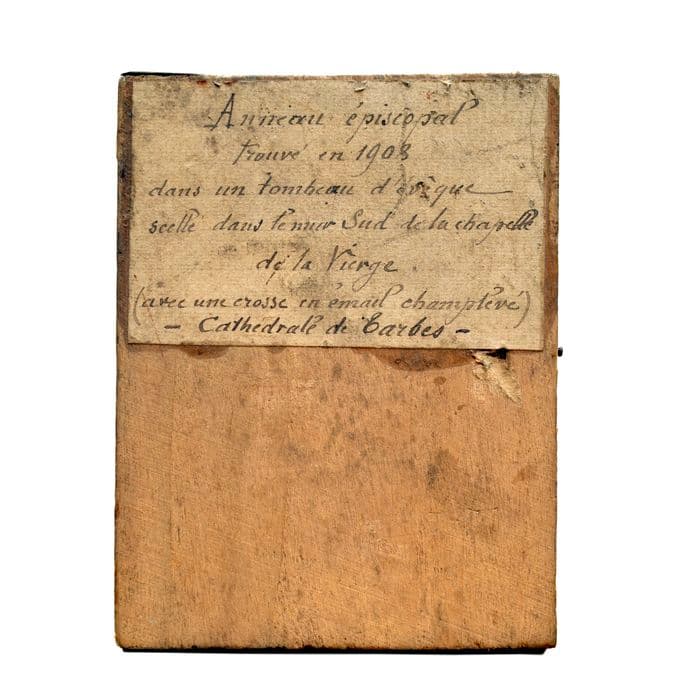 Anneau épiscopal
trouvé en 1903
dans un tombeau d'évêque
scellé dans le mur Sud de la chapelle
de la Vierge.
(avec une crosse en émail champlevé)
- Cathédrale de Tarbes -